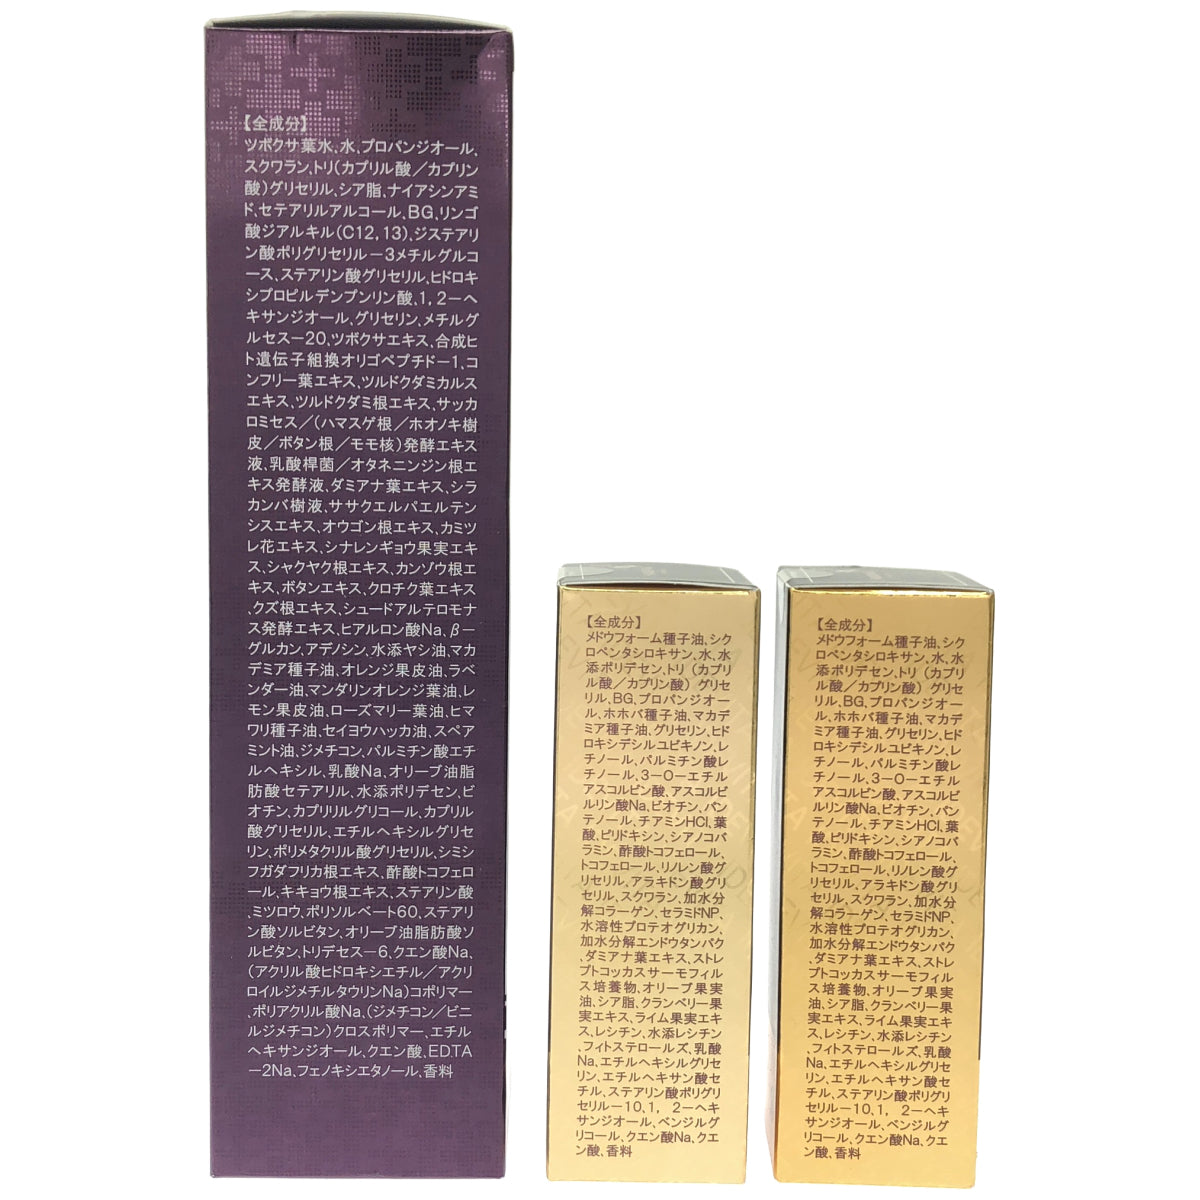 【全成分】
ツボクサ葉水、水、プロパンジオール、
スクワラン、トリ(カプリル酸／カプリン
酸)グリセリル、シア脂、ナイアシンアミ
ド、セテアリルアルコール、BG、リンゴ
酸ジアルキル(C12,13)、ジステアリ
ン酸ポリグリセリル－3メチルグルコ
ース、ステアリン酸グリセリル、ヒドロキ
シプロピルデンプンリン酸、1,2－ヘ
キサンジオール、グリセリン、メチルグ
ルセス－20、ツボクサエキス、合成ヒ
ト遺伝子組換オリゴペプチド－1、コ
ンフリー葉エキス、ツルドクダミカルス
エキス、ツルドクダミ根エキス、サッカ
ロミセス／(ハマスゲ根／ホオノキ樹
皮／ボタン根／モモ核)発酵エキス
液、乳酸桿菌／オタネニンジン根エ
キス発酵液、ダミアナ葉エキス、シラ
カンバ樹液、ササクエルパエルテン
シスエキス、オウゴン根エキス、カミツ
レ花エキス、シナレンギョウ果実エキ
ス、シャクヤク根エキス、カンゾウ根エ
キス、ボタンエキス、クロチク葉エキス
、クズ根エキス、シュードアルテロモナ
ス発酵エキス、ヒアルロン酸Na、β－
グルカン、アデノシン、水添ヤシ油、マカ
デミア種子油、オレンジ果皮油、ラベ
ンダー油、マンダリンオレンジ葉油、レ
モン果皮油、ローズマリー葉油、ヒマ
ワリ種子油、セイヨウハッカ油、スペア
ミント油、ジメチコン、パルミチン酸エチ
ルヘキシル、乳酸Na、オリーブ油脂
肪酸セテアリル、水添ポリデセン、ビ
オチン、カプリリルグリコール、カプリル
酸グリセリル、エチルヘキシルグリセ
リン、ポリメタクリル酸グリセリル、シミシ
フガダフリカ根エキス、酢酸トコフェロ
ール、キキョウ根エキス、ステアリン酸
、ミツロウ、ポリソルベート60、ステアリ
ン酸ソルビタン、オリーブ油脂肪酸ソ
ルビタン、トリデセス－6、クエン酸Na、
(アクリル酸ヒドロキシエチル／アクリ
ロイルジメチルタウリンNa)コポリマー、
ポリアクリル酸Na、(ジメチコン／ビニ
ルジメチコン)クロスポリマー、エチル
ヘキサンジオール、クエン酸、EDTA
－2Na、フェノキシエタノール、香料
【全成分】
メドウフォーム種子油、シク
ロペンタシロキサン、水、水
添ポリデセン、トリ（カプリ
ル酸／カプリン酸）グリセ
リル、BG、プロパンジオー
ル、ホホバ種子油、マカデ
ミア種子油、グリセリン、ヒド
ロキシデシルユビキノン、レ
チノール、パルミチン酸レ
チノール、3－O－エチル
アスコルビン酸、アスコルビ
ルリン酸Na、ビオチン、パン
テノール、チアミンHCl、葉
酸、ピリドキシン、シアノコバ
ラミン、酢酸トコフェロール、
トコフェロール、リノレン酸グ
リセリル、アラキドン酸グリ
セリル、スクワラン、加水分
解コラーゲン、セラミドNP、
水溶性プロテオグリカン、
加水分解エンドウタンパク
、ダミアナ葉エキス、ストレ
プトコッカスサーモフィル
ス培養物、オリーブ果実
油、シア脂、クランベリー果
実エキス、ライム果実エキ
ス、レシチン、水添レシチン
、フィトステロールズ、乳酸
Na、エチルヘキシルグリセ
リン、エチルヘキサン酸セ
チル、ステアリン酸ポリグリ
セリル－10、1，2－ヘキ
サンジオール、ベンジルグ
リコール、クエン酸Na、クエ
ン酸、香料
【全成分】
メドウフォーム種子油、シク
ロペンタシロキサン、水、水
添ポリデセン、トリ（カプリ
ル酸／カプリン酸）グリセ
リル、BG、プロパンジオー
ル、ホホバ種子油、マカデ
ミア種子油、グリセリン、ヒド
ロキシデシルユビキノン、レ
チノール、パルミチン酸レ
チノール、3－O－エチル
アスコルビン酸、アスコルビ
ルリン酸Na、ビオチン、パン
テノール、チアミンHCl、葉
酸、ピリドキシン、シアノコバ
ラミン、酢酸トコフェロール、
トコフェロール、リノレン酸グ
リセリル、アラキドン酸グリ
セリル、スクワラン、加水分
解コラーゲン、セラミドNP、
水溶性プロテオグリカン、
加水分解エンドウタンパク
、ダミアナ葉エキス、ストレ
プトコッカスサーモフィル
ス培養物、オリーブ果実
油、シア脂、クランベリー果
実エキス、ライム果実エキ
ス、レシチン、水添レシチン
、フィトステロールズ、乳酸
Na、エチルヘキシルグリセ
リン、エチルヘキサン酸セ
チル、ステアリン酸ポリグリ
セリル－10、1，2－ヘキ
サンジオール、ベンジルグ
リコール、クエン酸Na、クエ
ン酸、香料